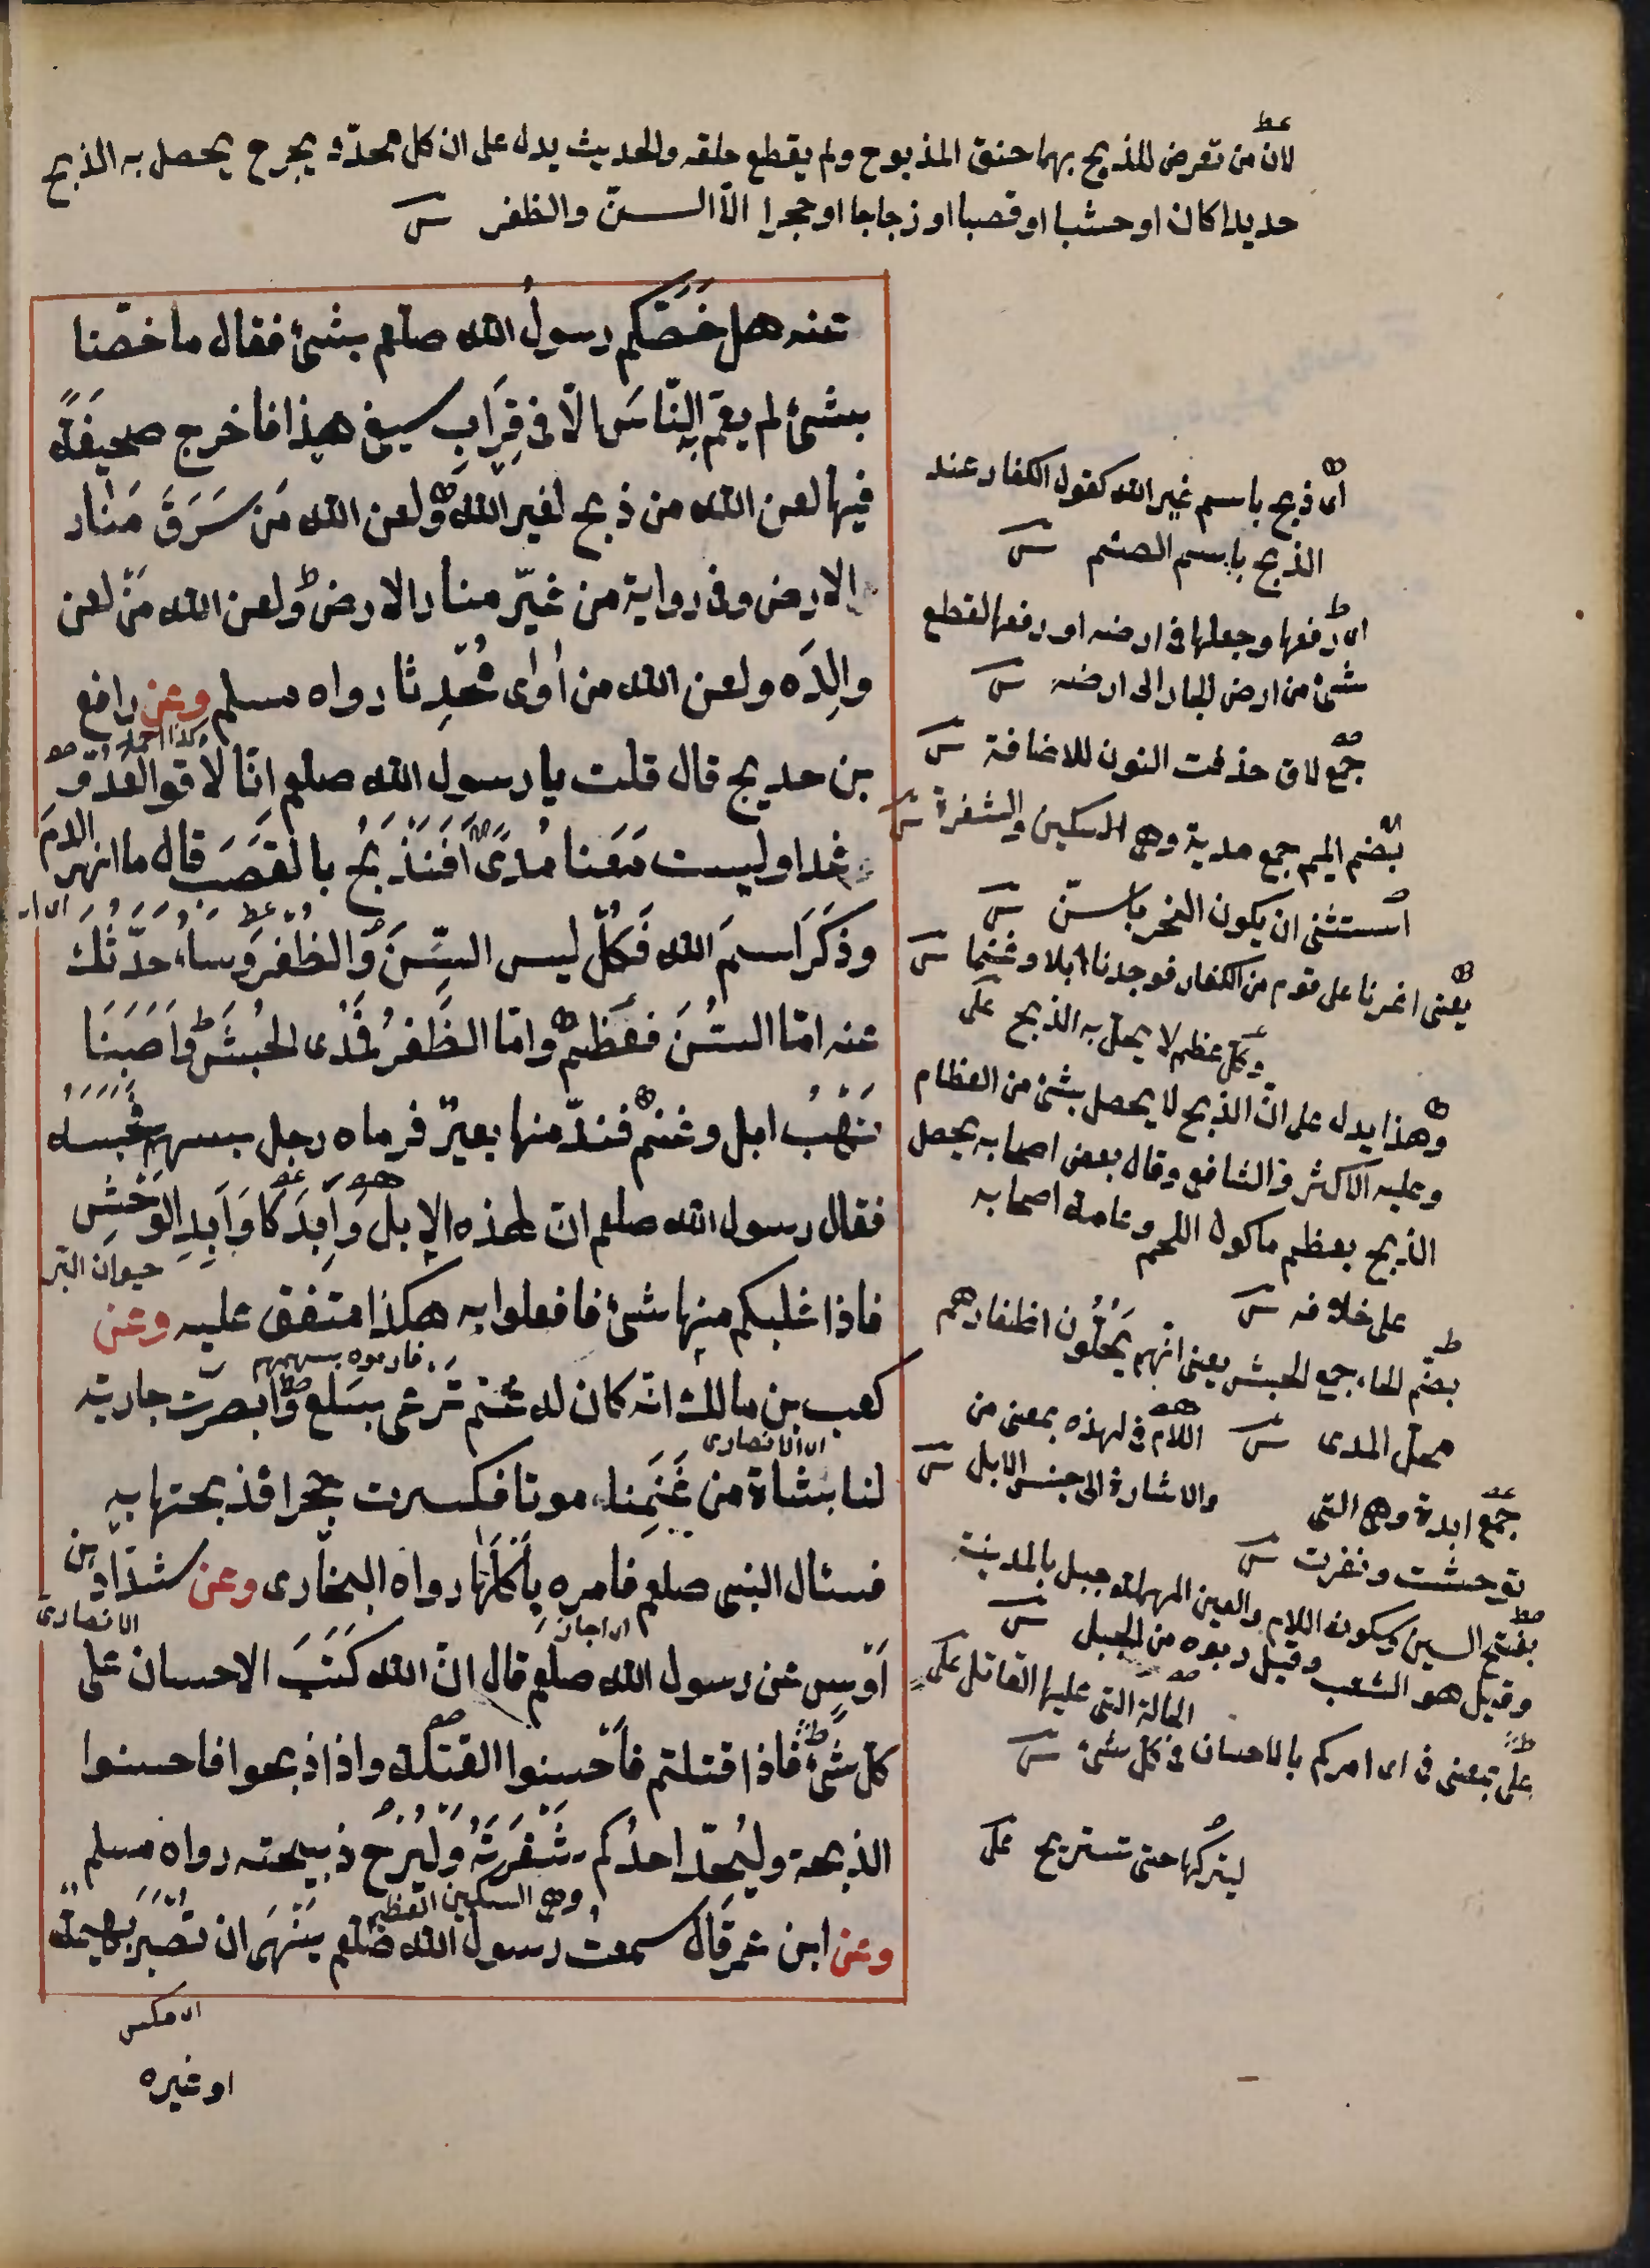 لان من تعرض للذبح بهما خنق المذبوح ولم يقطع حلقه والحديث يدل على ان كل محدّد يجرح يحصل به الذبح
حديدا كان او خشبا او قصبا او زجاجا او حجرا الا السنّ والظفر
عنه هل خَصَّكم رسولُ الله صلعم بشئ فقال ما خصّنا
بشئ لم يعمّ به النّاسَ الّا فى قِرَابِ سيفى هذا فاخرج صحيفةً
فيها لعن الله من ذبح لغير الله ولعن الله مَن سَرَقَ مَنار
الارض وفى رواية من غيّر منار الارض ولعن الله مَن لعن
والِدَه ولعن الله من اٰوٰى مُحْدِثا رواه مسلم وعن رافع
بن خديج قال قلت يا رسول الله صلعم انّا لاقوا العدُوِّ
غدا وليست مَعَنا مُدًى اَفَنَذْبَحُ بالقصَبِ قال ما انهر الدمَ
وذَكَرَ اسمَ الله فَكُلْ ليس السِّنَّ والظُّفرَ وسَاُحَدّثُكَ
عنه امّا السنُّ فعَظْمٌ وامّا الظُّفرُ فمُدَى الحُبشِ واَصَبنَا
نَهْبَ ابل وغنم فندّ منها بعيرٌ فرماه رجل بسهم فحَبسَهُ
فقال رسول الله صلعم انّ لهذه الاِبل اَوَابِدَ كاَوَابِدِ الوَحْشِ
حيوان البَرّ
فاذا غلبكم منها شئ فافعلوا به هكذا متفق عليه وعن
فارموه بسهم
كعب بن مالك انّه كان له غنم تَرعٰى بسَلع فابصرت جارية
لنا بشاة من غَنَمِنا موتا فكسرت حجرا فذبحتها به
فسئال النبى صلعم فامره بِاَكلها رواه البخارى وعن شدّاد بن
الانصارى
اَوْسٍ عن رسول الله صلعم قال انّ الله كَتَبَ الاحسان على
كلّ شئ فاذا قتلتم فاَحْسِنوا القتلة واذا ذبحوا فاحسنوا
الذبحة وليُحدّ احدُكم شَفْرَتَهُ وَلْيُرِحْ ذبيحته رواه مسلم
وهى السكين العظيم
وعن ابن عمر قال سمعت رسول الله صلعم يَنْهَى ان تُصْبَرَ بهيمةٌ
او غيره
اى ذبح باسم غير الله كقول الكفار عند
الذبح باسم الصنم
اى رفعها وجعلها فى ارضه او رفعها لقطع
شئ من ارض الجار الى ارضه
جمع لاق حذفت النون للاضافة
بضم الميم جمع مدية وهى السكين والشفرة
استثنى ان يكون النحر بالسنّ
يعنى اغرنا على قوم من الكفار فوجدنا ابلا وغنما
وكل عظم لا يحل به الذبح
وهذا يدل على انّ الذبح لا يحصل بشئ من العظام
وعليه الاكثر والشافعى وقال بعض اصحابه يحصل
الذبح بعظم ماكول اللحم وعامة اصحابه
على خلافه
بضم الحاء جمع الحبش يعنى انّهم يجعلون اظفارهم
محل المدى
اللام فى لهذه بمعنى من
والاشارة الى جنس الابل
جمع ابدة وهى التى
توحشت ونفرت
بفتح السين وسكون اللام والعين المهملة جبل بالمدينة
وقيل هو الشعب وقيل ربوه من الجبل
الحالة التى عليها القاتل
على بمعنى فى اى امركم بالاحسان فى كل شئ
ليتركها حتى تستريح